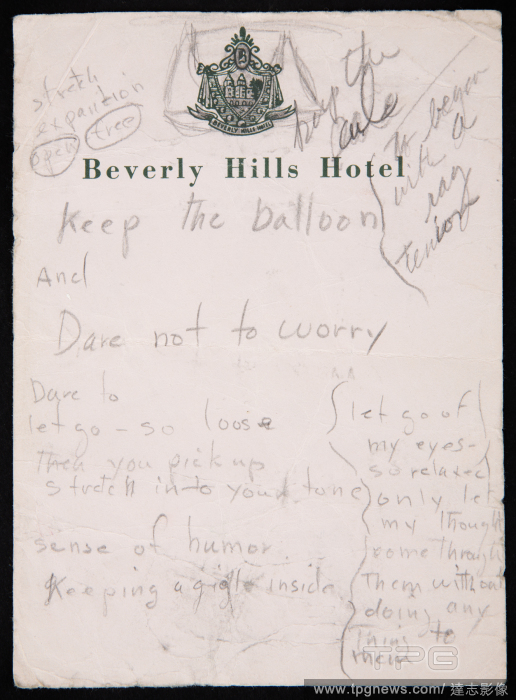 stretch
expantion
open
free
BEVERLY HILLS HOTEL
Beverly Hills Hotel
to began
with a
Keep the balloon
And
Dare not to worry
Dare to
let go - so loose
Then you pick up
stretch into your tone
sense of humor.
Keeping a gigle inside
let go of
my eyes-
so relaxed
only let
my thought
come through
Them without
doing any
Thing to
them
TPG
www.tpgnews.com / 達志影像